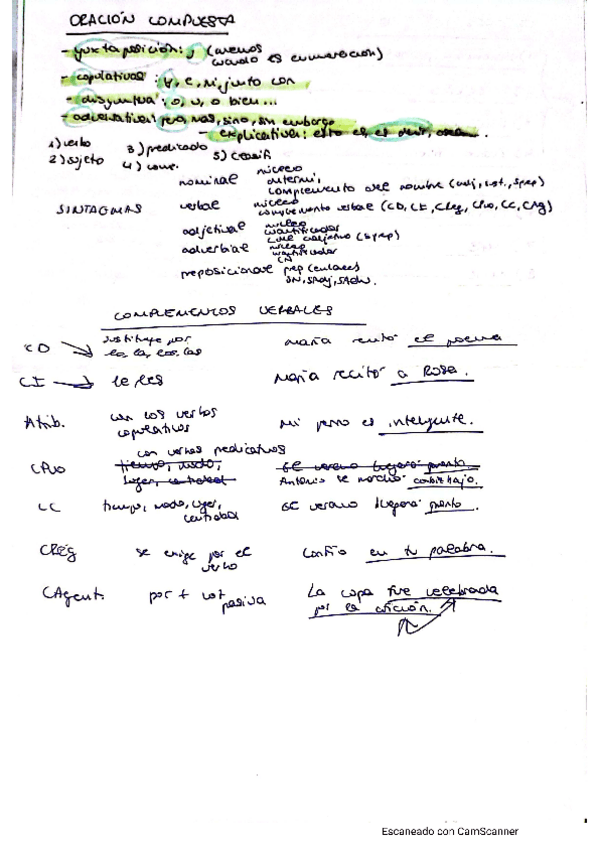 ORACIÓN COMPUESTA
- yuxtaposición: , (menos
cuando es enumeración)
- copulativas: y, e, ni, junto con
- disyuntiva: o, u, o bien...
- adversativas: pero, mas, sino, sin embargo
- explicativas: esto es, es decir, o sea.
1) verbo
2) sujeto
3) predicado
4) comp.
5) clasif
SINTAGMAS
nominal núcleo
determi,
complemento del nombre (adj, sust., sprep)
verbal núcleo
complemento verbal (CD, CI, CReg, CPvo, CC, CAg)
adjetival núcleo
cuantificador
C del adjetivo (Sprep)
adverbial núcleo
cuantificador
CN
preposicional prep (enlace)
SN, SAdj, SAdv.
COMPLEMENTOS VERBALES
CD sustituye por
lo, la, los, las
María recitó el poema
CI le, les María recitó a Rosa.
Atrib. con los verbos
copulativos
Mi perro es inteligente.
con verbos predicativos
CPvo tiempo, modo,
lugar, cantidad
El verano llegará pronto
Antonio se marchó cabizbajo.
CC tiempo, modo, lugar,
cantidad
El verano llegará pronto.
CReg se exige por el
verbo
Confío en tu palabra.
CAgent. por + voz
pasiva
La copa fue celebrada
por la afición.
Escaneado con CamScanner